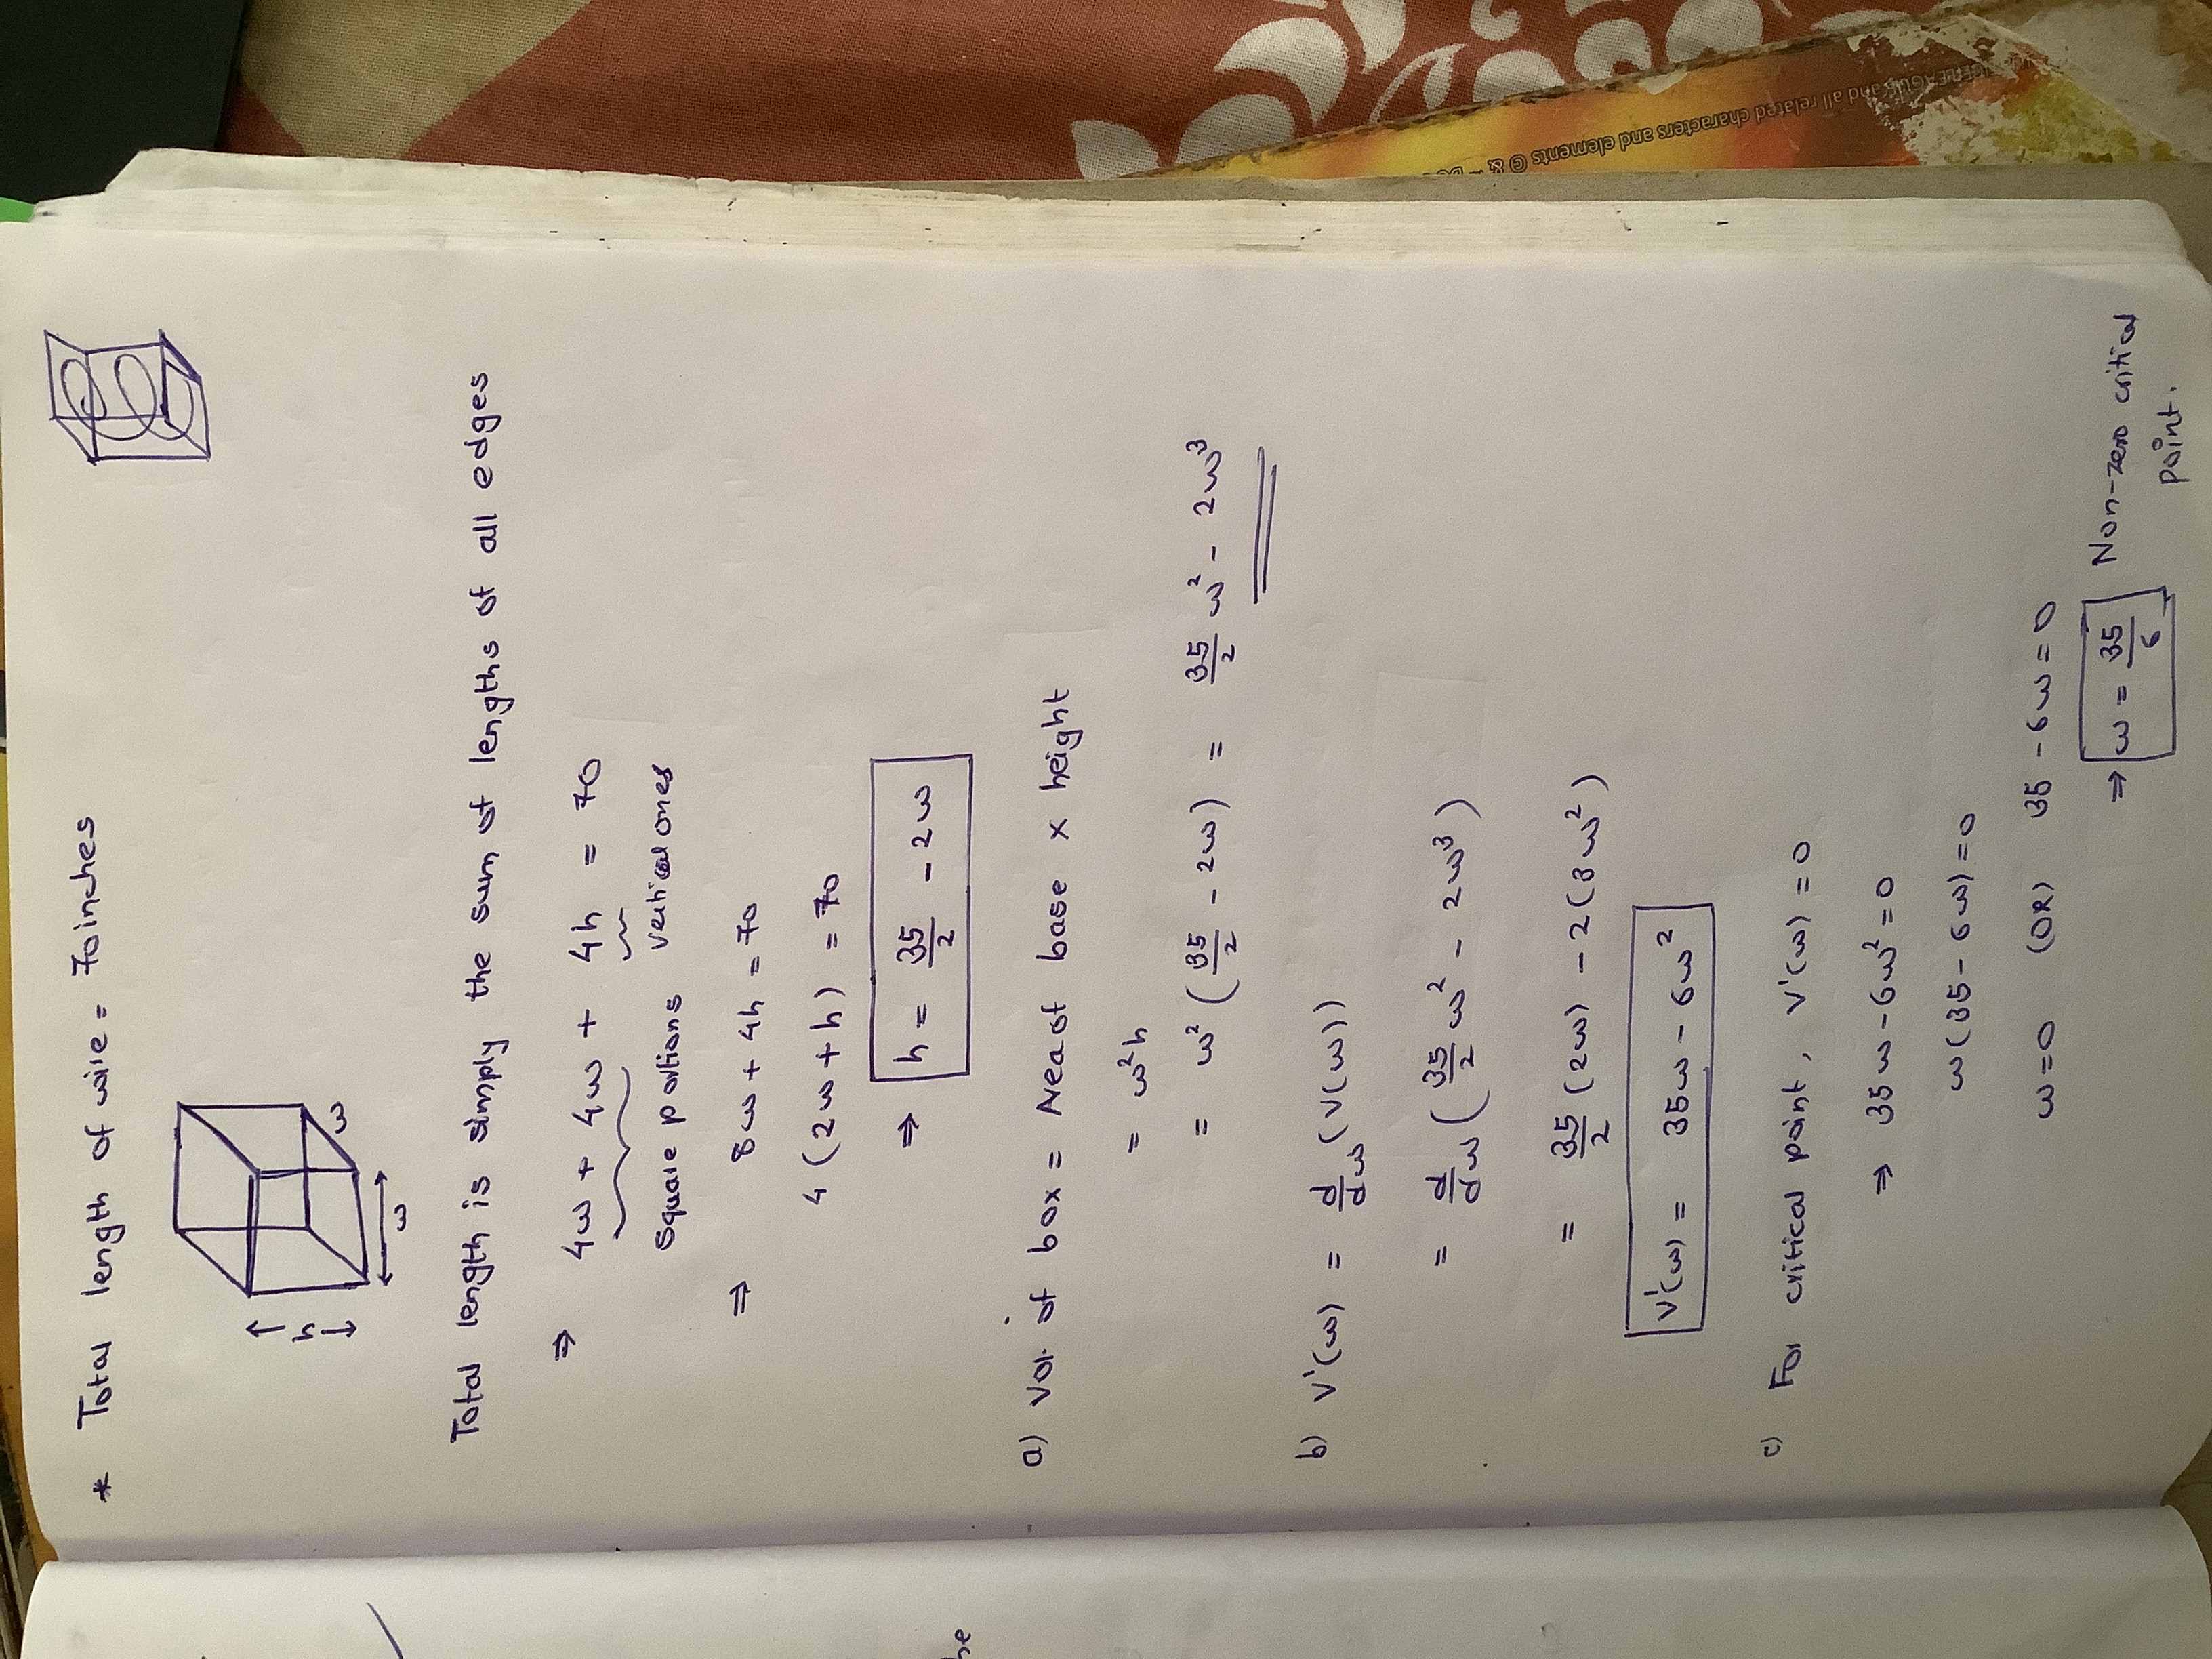 * Total length of wire = 70 inches
h
w
w
Total length is simply the sum of lengths of all edges
⇒ 4w + 4w + 4h = 70
Square portions vertical ones
⇒ 8w + 4h = 70
4 (2w + h) = 70
⇒ h = 35/2 - 2w
a) Vol. of box = Area of base x height
= w²h
= w² (35/2 - 2w) = 35/2 w² - 2w³
b) V'(w) = d/dw (V(w))
= d/dw (35/2 w² - 2w³)
= 35/2 (2w) - 2(3w²)
V'(w) = 35w - 6w²
c) For critical point, V'(w) = 0
⇒ 35w - 6w² = 0
w(35 - 6w) = 0
w = 0 (OR) 35 - 6w = 0
⇒ w = 35/6 Non-zero critical
point.
he
& all related characters and elements © &